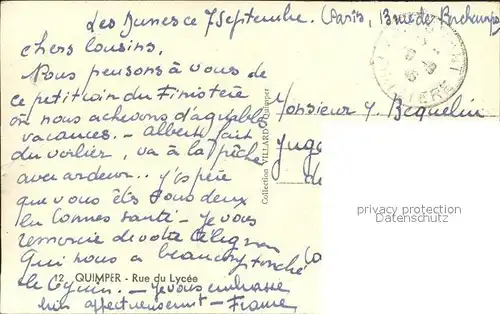 Les Dunes ce 7 Septembre. (Paris, 13 rue de
chers Cousins,
Nous pensons à vous de
ce petit coin du Finistère
où nous achevons d'agréables
vacances. - Albert fait
du voilier, va à la pêche
avec ardeur.. j'espère
que vous êtes tous deux
en bonnes santé - Je vous
remercie de votre
qui nous a beaucoup touché
- Je vous embrasse
bien affectueusement - France
12 QUIMPER - Rue du Lycée
Collection VILLARD Quimper
Monsieur Y. Bequelin
Juge
de
privacy protection
Datenschutz